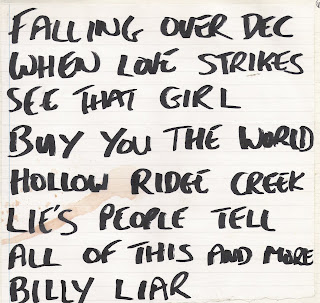 FALLING OVER DEC
WHEN LOVE STRIKES
SEE THAT GIRL
BUY YOU THE WORLD
HOLLOW RIDGE CREEK
LIE'S PEOPLE TELL
ALL OF THIS AND MORE
BILLY LIAR